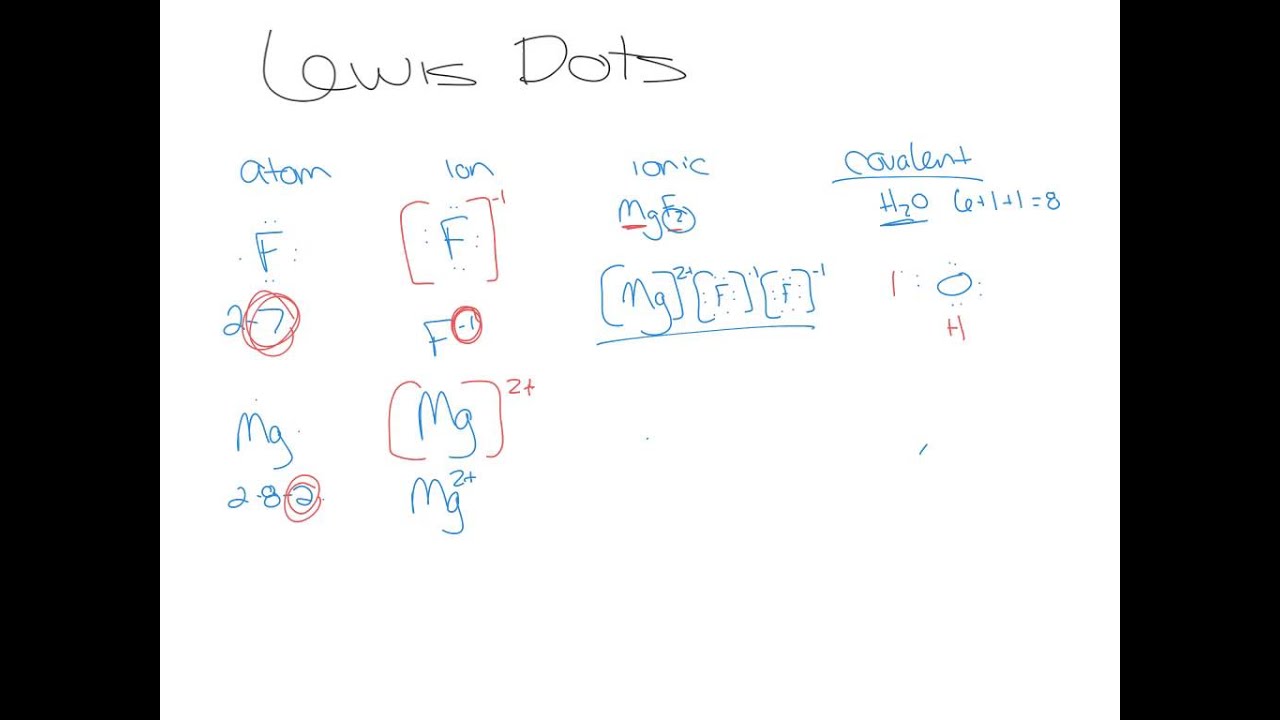 Lewis Dots
atom
ion
ionic
covalent
F
[F]-1
MgF2
H2O 6+1+1=8
2-7
F-1
[Mg]2+[F]-1[F]-1
O
H
Mg
[Mg]2+
2-8-2
Mg2+